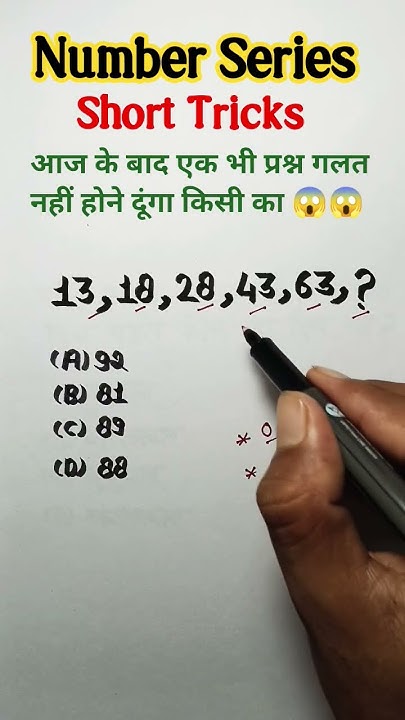 Number Series
Short Tricks
आज के बाद एक भी प्रश्न गलत
नहीं होने दूंगा किसी का 😱😱
13, 18, 28, 43, 63, ?
(A) 92
(B) 81
(C) 89
(D) 88
*
*